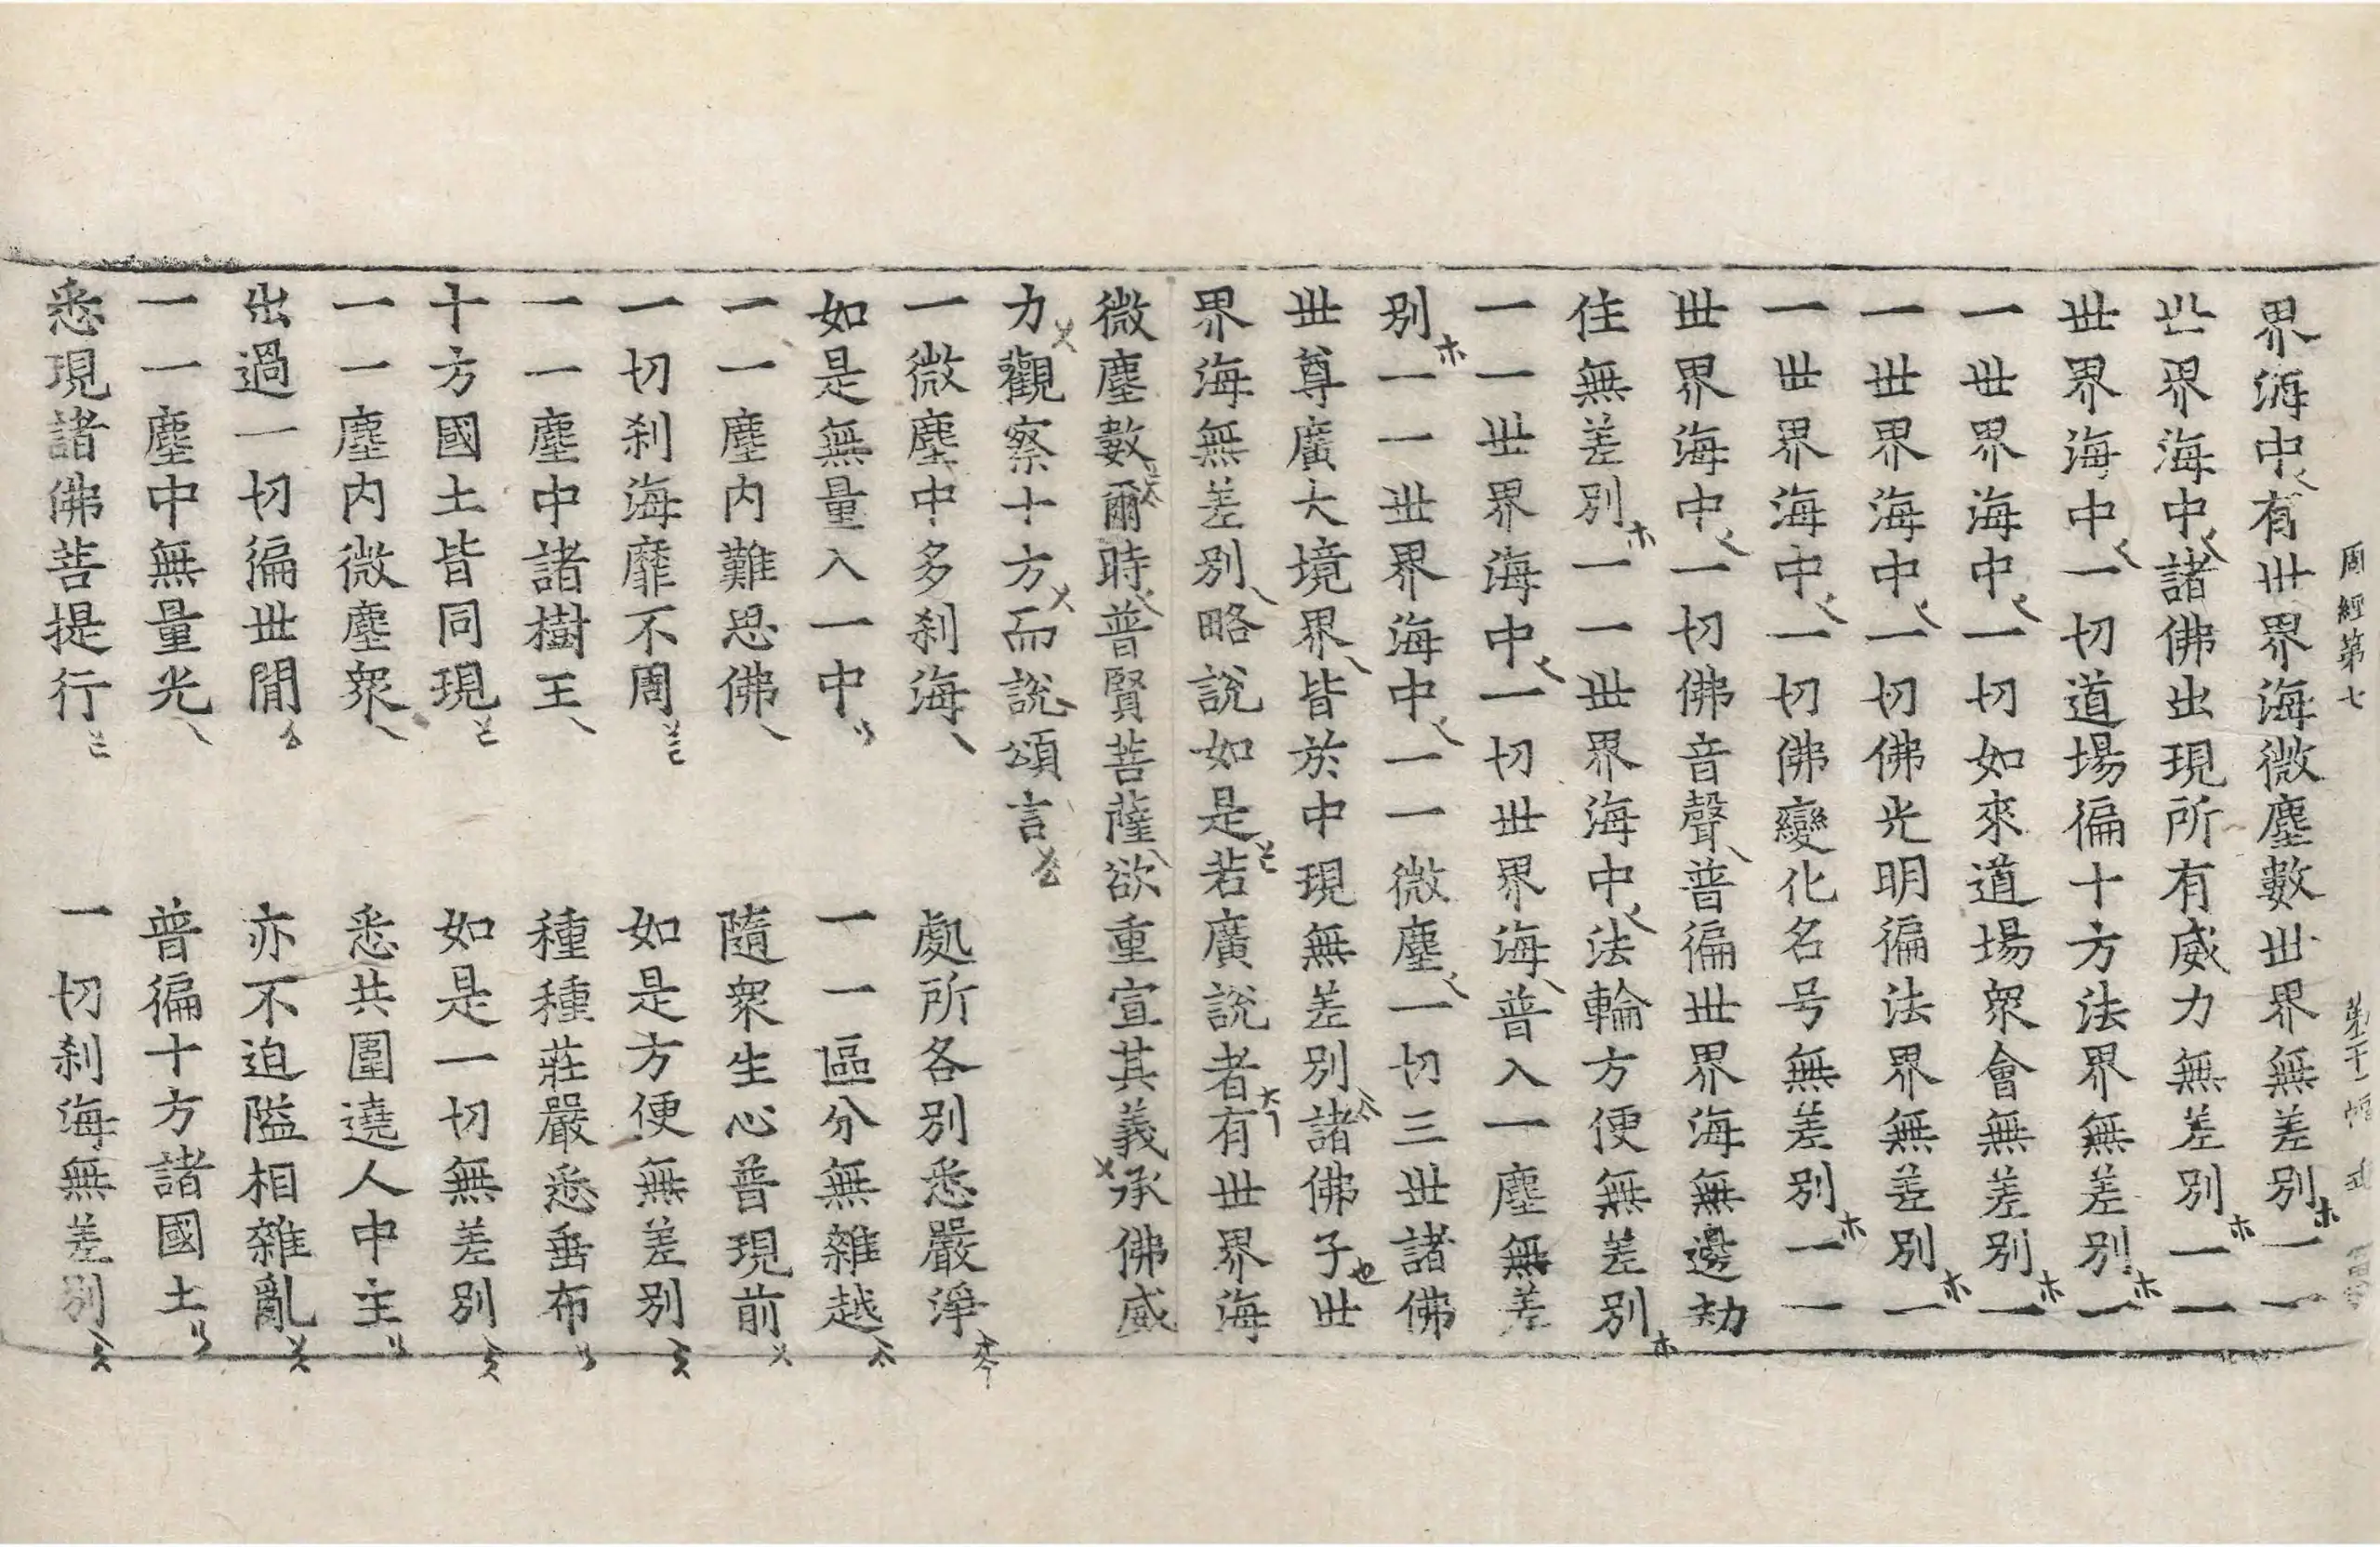 周經第七
界海中有世界海微塵數世界無差別一一
世界海中諸佛出現所有威力無差別一一
世界海中一切道場徧十方法界無差別一
一世界海中一切如來道場衆會無差別一
一世界海中一切佛光明徧法界無差別一
一世界海中一切佛變化名号無差別一一
世界海中一切佛音聲普徧世界海無邊劫
住無差別一一世界海中法輪方便無差別
一一世界海中一切世界海普入一塵無差
別一一世界海中一一微塵一切三世諸佛
世尊廣大境界皆於中現無差別諸佛子世
界海無差別略說如是若廣說者有世界海
微塵數爾時普賢菩薩欲重宣其義承佛威
力觀察十方而說頌言
一微塵中多刹海 處所各別悉嚴淨
如是無量入一中 一一區分無雜越
一一塵内難思佛 隨衆生心普現前
一切刹海靡不周 如是方便無差別
一一塵中諸樹王 種種莊嚴悉垂布
十方國土皆同現 如是一切無差別
一一塵内微塵衆 悉共圍遶人中主
出過一切徧世閒 亦不迫隘相雜亂
一一塵中無量光 普徧十方諸國土
悉現諸佛菩提行 一切刹海無差別